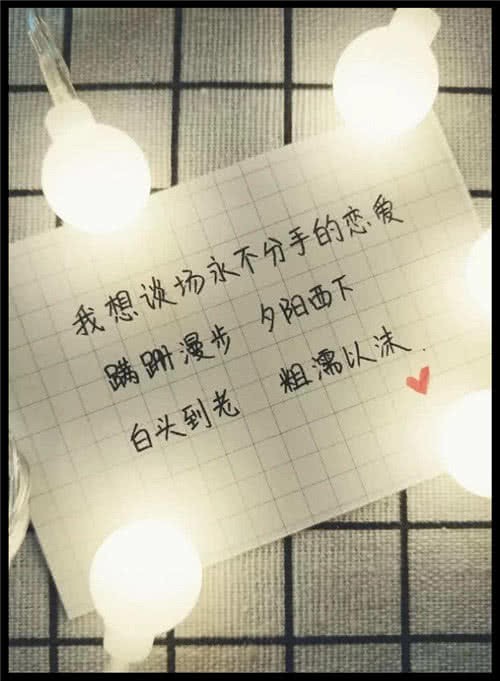 我想谈场永不分手的恋爱
蹒跚漫步 夕阳西下
白头到老 粗濡以沫.